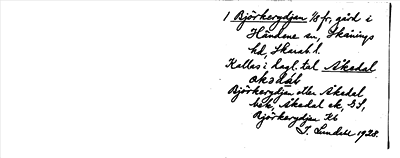 1 Björkerydjan 1/8 fr, gård i
Händene sn, Skånings
hd, Skarab. l.
Kallas i dagl. tal Åkedal
Björkerydjan eller Åkedal
bebs, Åkedal ek, GS,
Björkerydjan Kb
I. Lundell 1928.